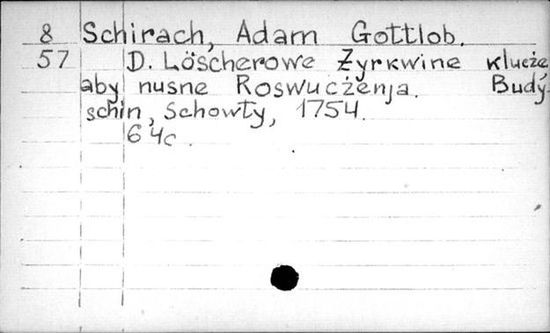 8 Schirach, Adam Gottlob.
57 D. Löscherowe Żyrkwine klucże
aby nusne Roswucżenja. Budy-
schin, Schowty, 1754.
64c.